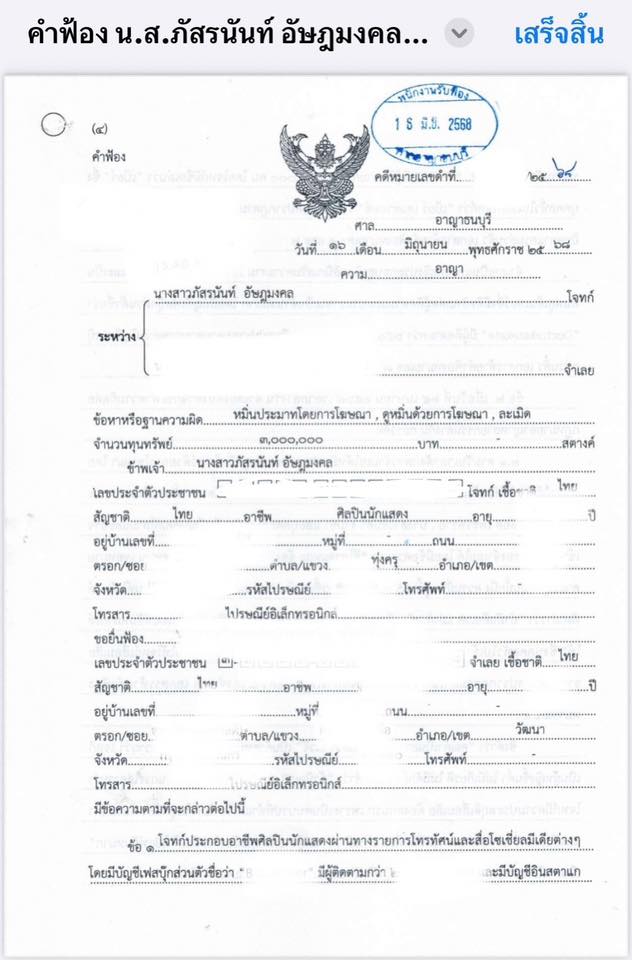 คำฟ้อง น.ส.ภัสรนันท์ อัษฎมงคล...
เสร็จสิ้น
(๔)
พนักงานรับฟ้อง
16 มิ.ย. 2568
คำฟ้อง
คดีหมายเลขดำที่ ๒๕๖๘
ศาล อาญาธนบุรี
วันที่ ๑๖ เดือน มิถุนายน พุทธศักราช ๒๕ ๖๘
ความ อาญา
นางสาวภัสรนันท์ อัษฎมงคล โจทก์
ระหว่าง
จำเลย
ข้อหาหรือฐานความผิด หมิ่นประมาทโดยการโฆษณา , ดูหมิ่นด้วยการโฆษณา , ละเมิด
จำนวนทุนทรัพย์ ๓,๐๐๐,๐๐๐ บาท - สตางค์
ข้าพเจ้า นางสาวภัสรนันท์ อัษฎมงคล
เลขประจำตัวประชาชน โจทก์ เชื้อชาติ ไทย
สัญชาติ ไทย อาชีพ ศิลปินนักแสดง อายุ ปี
อยู่บ้านเลขที่ หมู่ที่ ถนน
ตรอก/ซอย ตำบล/แขวง ทุ่งครุ อำเภอ/เขต
จังหวัด รหัสไปรษณีย์ โทรศัพท์
โทรสาร ไปรษณีย์อิเล็กทรอนิกส์
ขอยื่นฟ้อง
เลขประจำตัวประชาชน จำเลย เชื้อชาติ ไทย
สัญชาติ ไทย อาชีพ อายุ ปี
อยู่บ้านเลขที่ หมู่ที่ ถนน
ตรอก/ซอย ตำบล/แขวง อำเภอ/เขต วัฒนา
จังหวัด รหัสไปรษณีย์ โทรศัพท์
โทรสาร ไปรษณีย์อิเล็กทรอนิกส์
มีข้อความตามที่จะกล่าวต่อไปนี้
ข้อ ๑ โจทก์ประกอบอาชีพศิลปินนักแสดงผ่านทางรายการโทรทัศน์และสื่อโซเชี่ยลมีเดียต่างๆ
โดยมีบัญชีเฟสบุ๊กส่วนตัวชื่อว่า มีผู้ติดตามกว่า และมีบัญชีอินสตาแก